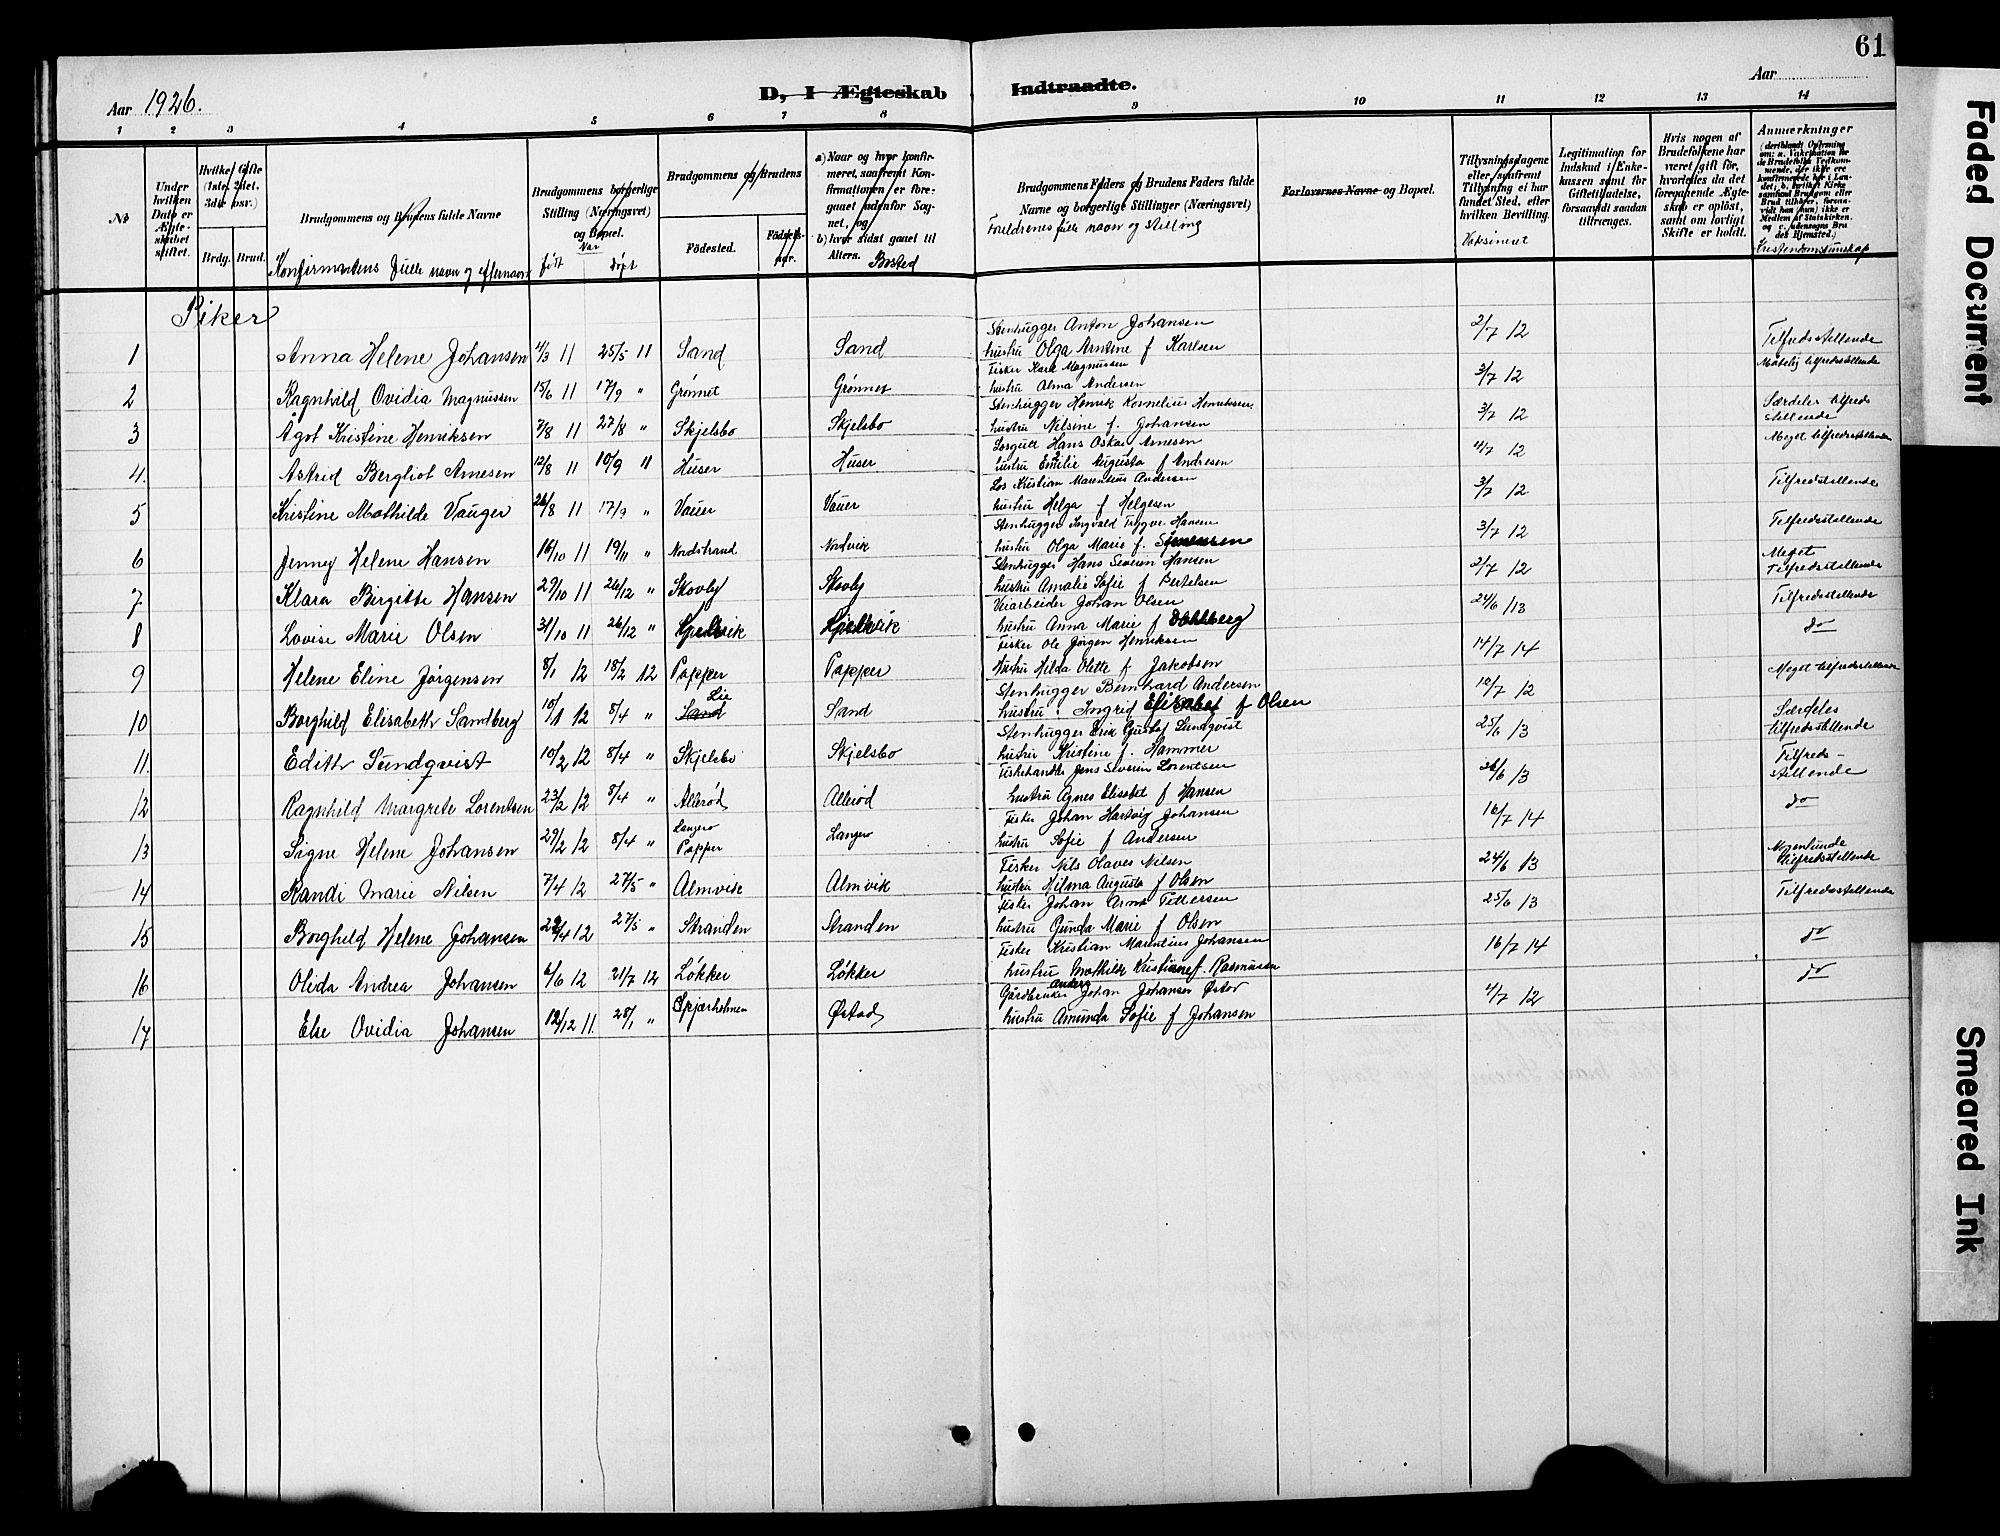 61
Aar 1926.
D, I Ægteskab Indtraadte.
Aar
1 2 3 4 5 6 7 8 9 10 11 12 13 14
№
Under hvilken Dato er Ægteskabet stiftet.
Hvilke Gifte (1ste, 2det. 3die osv.)
Brdg. Brud.
Brudgommens og Brudens fulde Navne
Konfirmantens fulle navn og efternavn
Brudgommens borgerlige Stilling (Næringsvei) og Bopæl.
Når
født døpt
Brudgommens og Brudens
Födested.
Födselsaar.
a) Naar og hvor konfirmeret, saafremt Konfirmationen er foregaaet udenfor Sognet, og
b) hvor sidst gaaet til Alters.
Bosted
Brudgommens Faders og Brudens Faders fulde Navne og borgerlige Stillinger (Næringsvei)
Foreldrenes fulle navn og stilling
Forlovernes Navne og Bopæl.
Tillysningsdagene eller saafremt Tillysning ei har fundet Sted, efter hvilken Bevilling.
Vaksinert
Legitimation for Indskud i Enkekassen samt for Giftetilladelse, forsaavidt saadan tiltrænges.
Hvis nogen af Brudefolkene har været gift för, hvorledes da det foregaaende Ægteskab er oplöst, samt om lovligt Skifte er holdt.
Anmærkninger
Kristendomskunskap
Piker
1 Anna Helene Johansen 4/3 11 25/5 11 Sand Sand Stenhugger Anton Johansen hustru Olga Arntine f Karlsen 2/7 12 Tilfredsstillende
2 Ragnhild Ovidia Magnussen 15/6 11 17/9 " Grønnet Grønnet Fisker Karl Magnussen hustru Alma Andersen 3/7 12 Måtelig tilfredsstillende
3 Ågot Kristine Henriksen 7/8 11 27/8 " Skjelsbo Skjelsbo Stenhugger Henrik Kornelius Henriksen hustru Nilsine f. Johansen 3/7 12 Særdeles tilfredsstillende
4. Astrid Bergliot Arnesen 12/8 11 10/9 11 Huser Huser Losgutt Hans Oskar Arnesen hustru Emilie Augusta f Andresen 4/7 12 Meget tilfredsstillende
5 Kristine Mathilde Vauger 26/8 11 17/9 " Vauer Vauer Los Kristian Marentius Andersen hustru Helga f Helgesen 3/7 12 Tilfredsstillende
6 Jenny Helene Hansen 16/10 11 19/11 " Nordstrand Nordvik Stenhugger Ingvald Trygve Hansen hustru Olga Marie f. Simensen 3/7 12 Tilfredsstillende
7 Klara Birgitte Hansen 29/10 11 26/12 " Skovby Skovby Stenhugger Hans Severin Hansen hustru Amalie Sofie f Bertelsen 2/7 12 Meget Tilfredsstillende
8 Lovise Marie Olsen 31/10 11 26/12 " Kjelvik Kjelkvik Veiarbeider Johan Olsen hustru Anna Marie f Dahlberg 24/6 13 Tilfredsstillende
9 Helene Eline Jørgensen 8/1 12 18/2 12 Papper Papper Fisker Ole Jørgen Henriksen Hustru Hilda Olette f Jakobsen 14/7 14 do
10 Borghild Elisabeth Sandberg 10/1 12 8/4 " Sand Lie Sand Stenhugger Bernhard Andersen hustru: Ingrid Elisabet f Olsen 12/7 12 Meget tilfredsstillende
11. Edith Sundqvist 10/2 12 8/4 " Skjelsbo Skjelsbo Stenhugger Erik Gustaf Sundqvist hustru Kristine f. Hammer 25/6 13 Særdeles tilfredsstillende
12 Ragnhild Margrete Lorentsen 23/2 12 8/4 " Allerød Allerød Fiskehandler Jens Severin Lorentsen hustru Agnes Elisabet f Hansen 26/6 13 Tilfredsstillende
13 Signe Helene Johansen 29/2 12 8/4 " Langerø Papper Langerø Fisker Johan Hartvig Johansen hustru Sofie f Andersen 16/7 14 do
14 Randi Marie Nilsen 7/4 12 27/5 " Almvik Almvik Fisker Nils Olaves Nilsen hustru Hilma Augusta f Olsen 24/6 13 Nogenlunde tilfredsstillende
15 Borghild Helene Johansen 22/4 12 27/5 " Stranden Stranden Fisker Johan Arnt Pettersen hustru Gunda Marie f Olsen 25/6 13 Tilfredsstillende
16 Olida Andrea Johansen 6/6 12 21/7 12 Løkker Løkker Fisker Kristian Marentius Johansen hustru Mathilde Kristiane f. Rasmussen 16/7 14 do
17 Else Ovidia Johansen 12/12 11. 28/1 " Spjærholmen Østad Gårdbruker Anders Johan Johansen hustru Amunda Sofie f Johansen 4/7 12 do
Faded Document
Smeared Ink